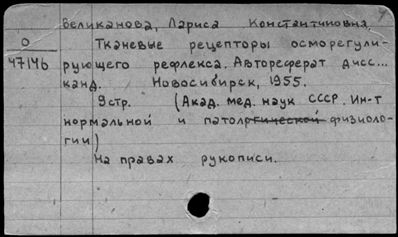 Великанова, Лариса Константиновна.
О
47146
Тканевые рецепторы осморегули-
рующего рефлекса. Автореферат дисс...
канд. Новосибирск, 1955.
9стр. (Акад. мед. наук СССР. Ин-т
нормальной и патологической физиоло-
гии)
На правах рукописи.